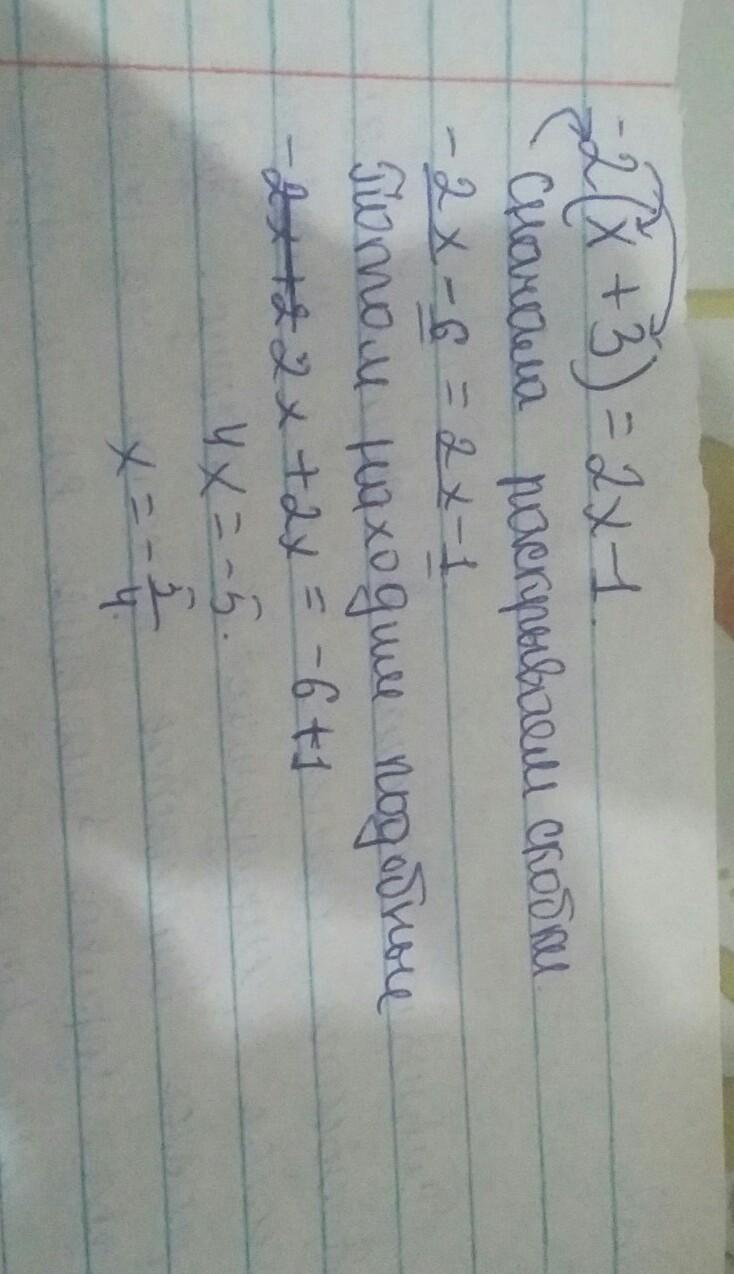 -2(x+3)=2x-1.
Сначала раскрываем скобки.
-2x-6=2x-1
Потом находим подобные
2x+2x=-6+1
4x=-5.
x=-5/4.